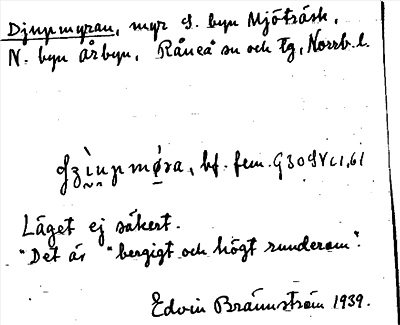 Djupmyran, myr S. byn Mjöträsk,
N. byn Årbyn, Råneå sn och tg, Norrb. l.
bf. fem.
Läget ej säkert.
"Det är "bergigt och högt runderom".
Edvin Brännström 1939.